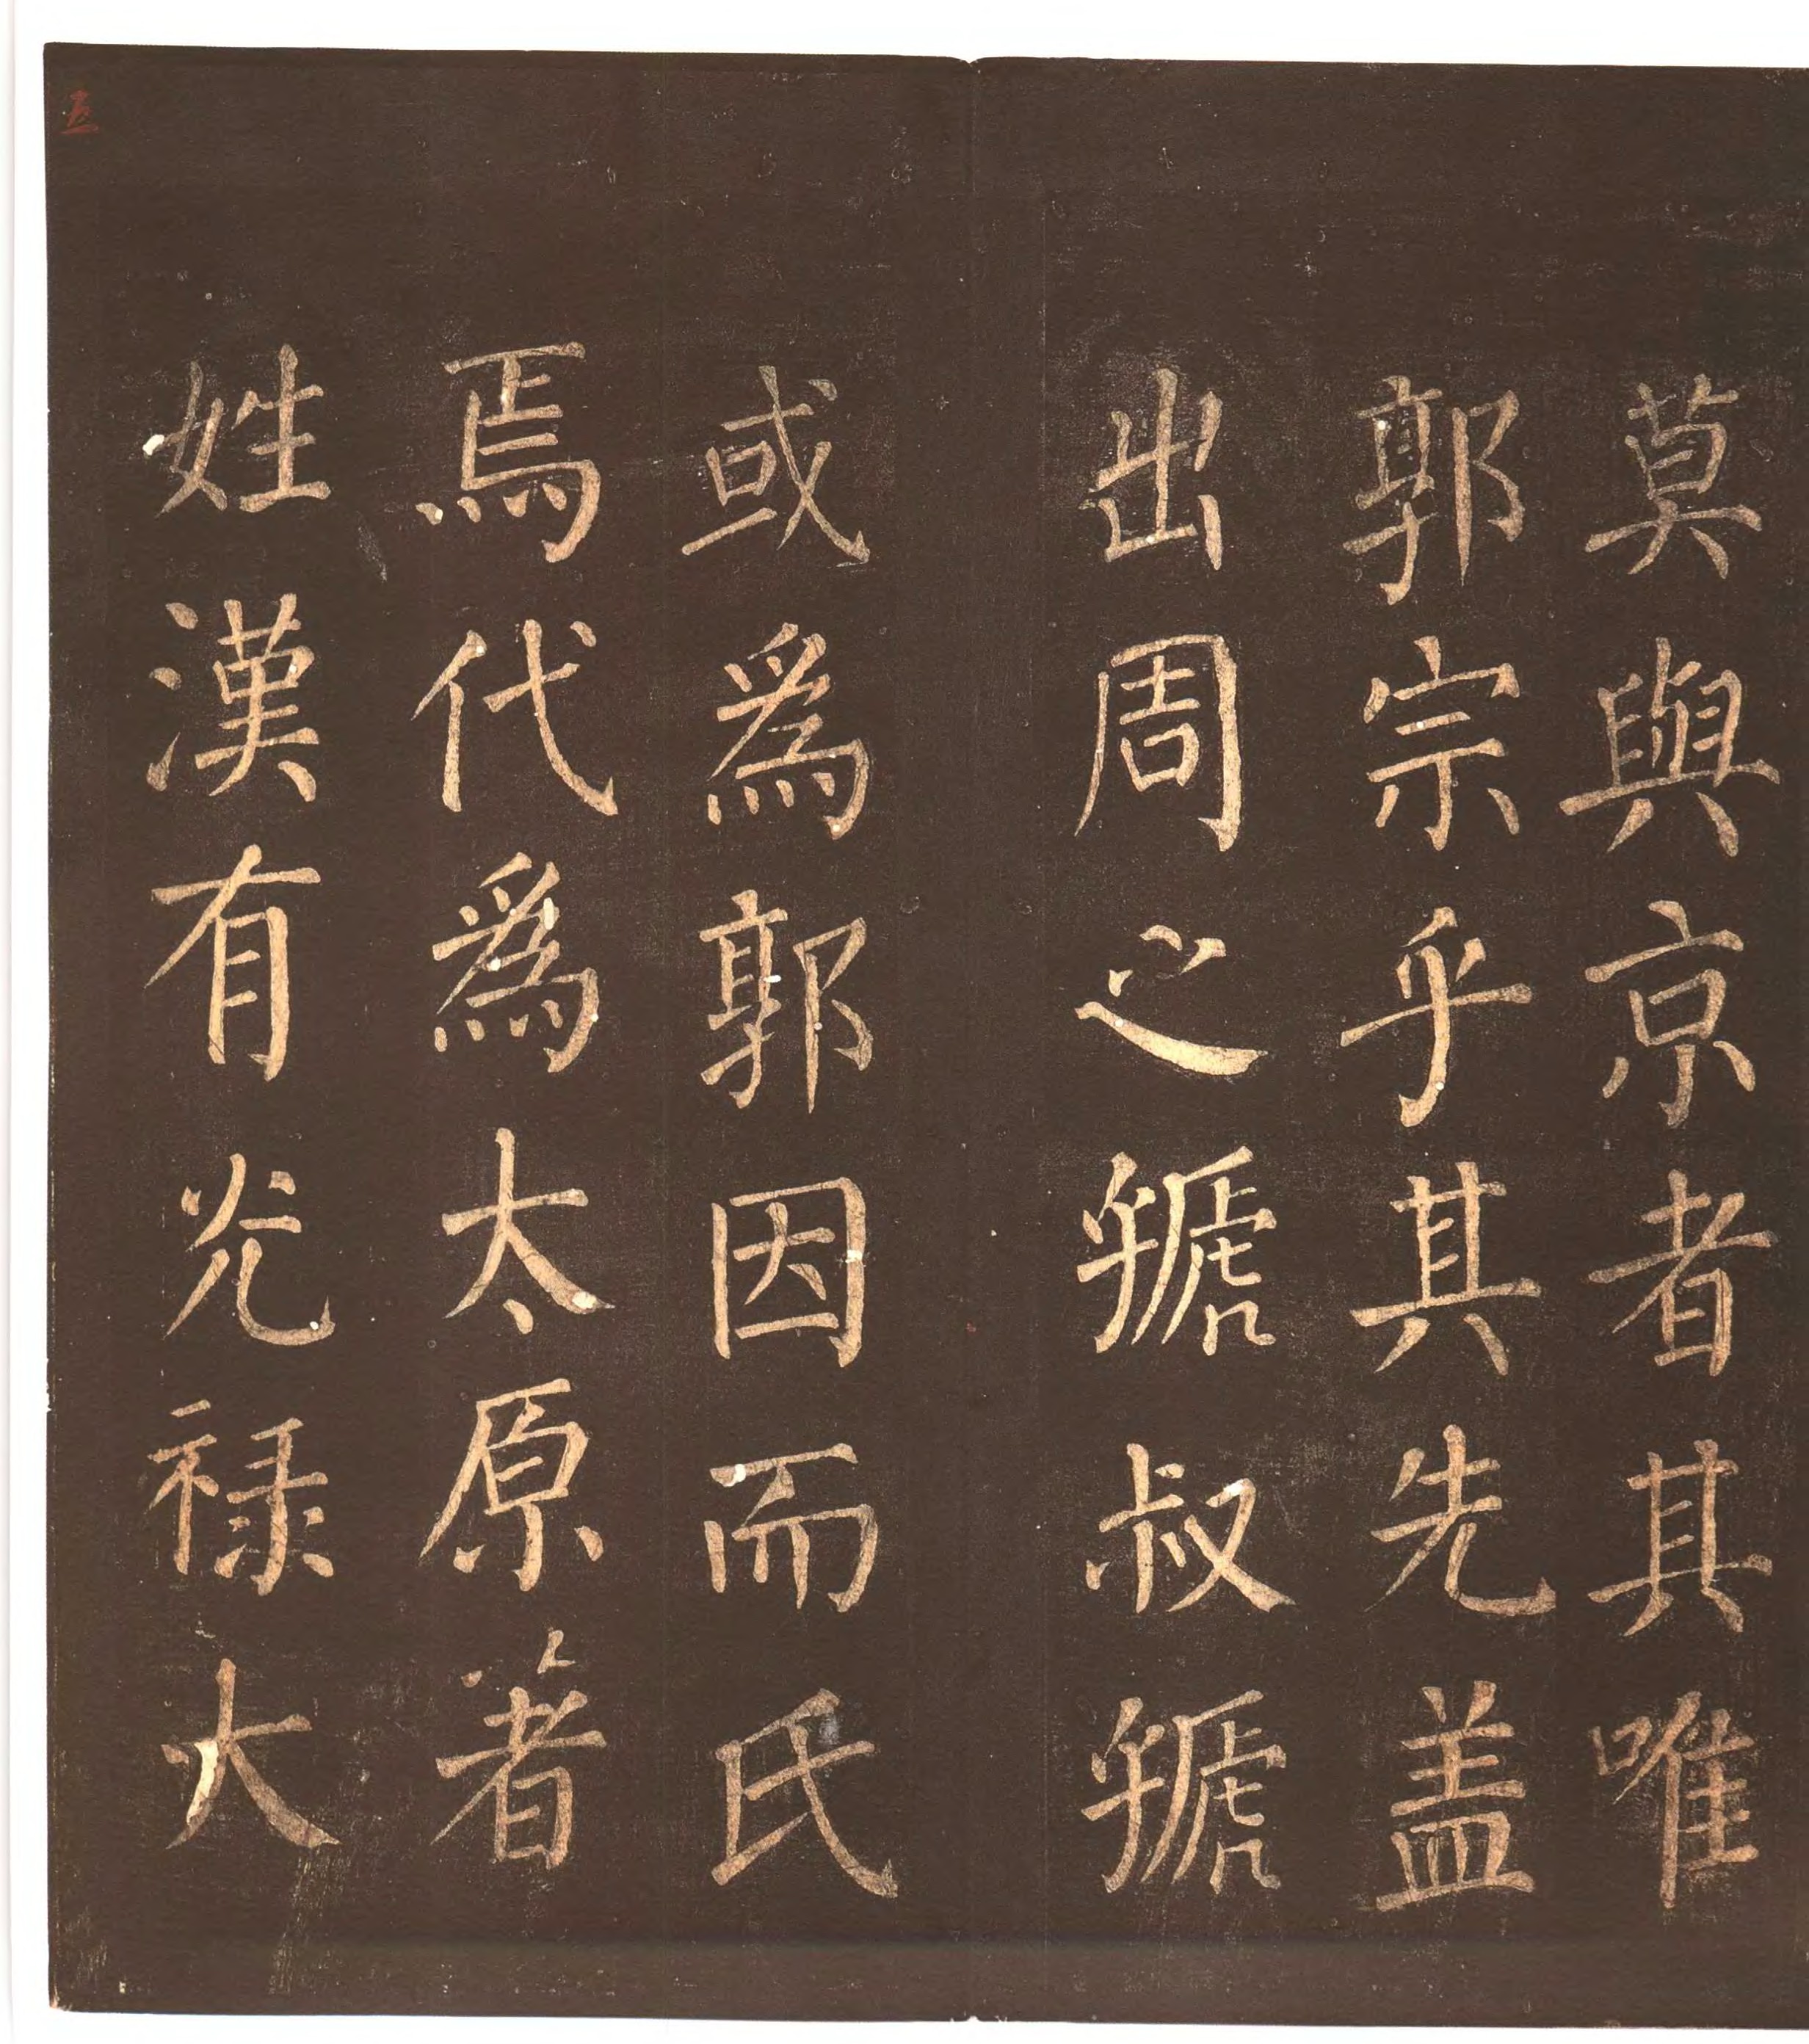 莫與京者其唯
郭宗乎其先盖
出周之虢叔虢
或為郭因而氏
焉代為太原著
姓漢有光禄大